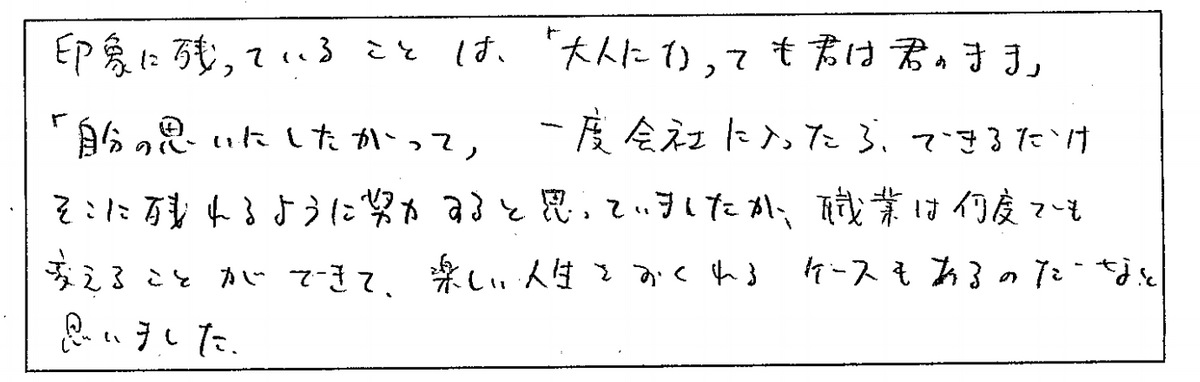 印象に残っていることは、「大人になっても君は君のまま」
「自分の思いにしたがって」一度会社に入ったら、できるだけ
そこに残れるように努力すると思っていましたが、職業は何度でも
変えることができて、楽しい人生をおくれるケースもあるのだなと
思いました。